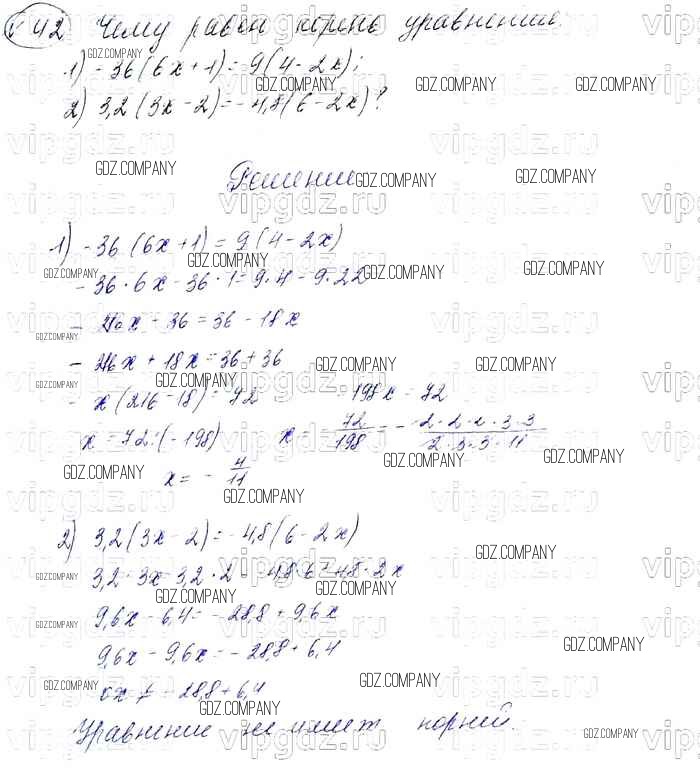 № 42 Чему равен корень уравнения:
1) - 36 (6x + 1) = 9 (4 - 2x);
2) 3,2 (3x - 2) = - 4,8 (6 - 2x)?
Решение
1) - 36 (6x + 1) = 9 (4 - 2x)
- 36 · 6x - 36 · 1 = 9 · 4 - 9 · 2x
- 216x - 36 = 36 - 18x
- 216x + 18x = 36 + 36
- x (216 - 18) = 72 - 198x = 72
x = 72 : (- 198) x = - 72/198 = - 2·2·2·3·3/2·3·3·11
x = - 4/11
2) 3,2 (3x - 2) = - 4,8 (6 - 2x)
3,2 · 3x - 3,2 · 2 = - 4,8 · 6 + 4,8 · 2x
9,6x - 6,4 = - 28,8 + 9,6x
9,6x - 9,6x = - 28,8 + 6,4
0x ≠ - 28,8 + 6,4
Уравнение не имеет корней.
GDZ.COMPANY
vipgdz.ru